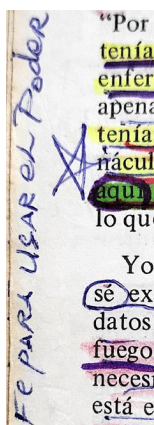 Fe PARA USAR eL PodeR
“Por
tenía
enfer
apena
tenía
nácul
aquí
lo que
Yo
sé ex
datos
fuego
neces
está e